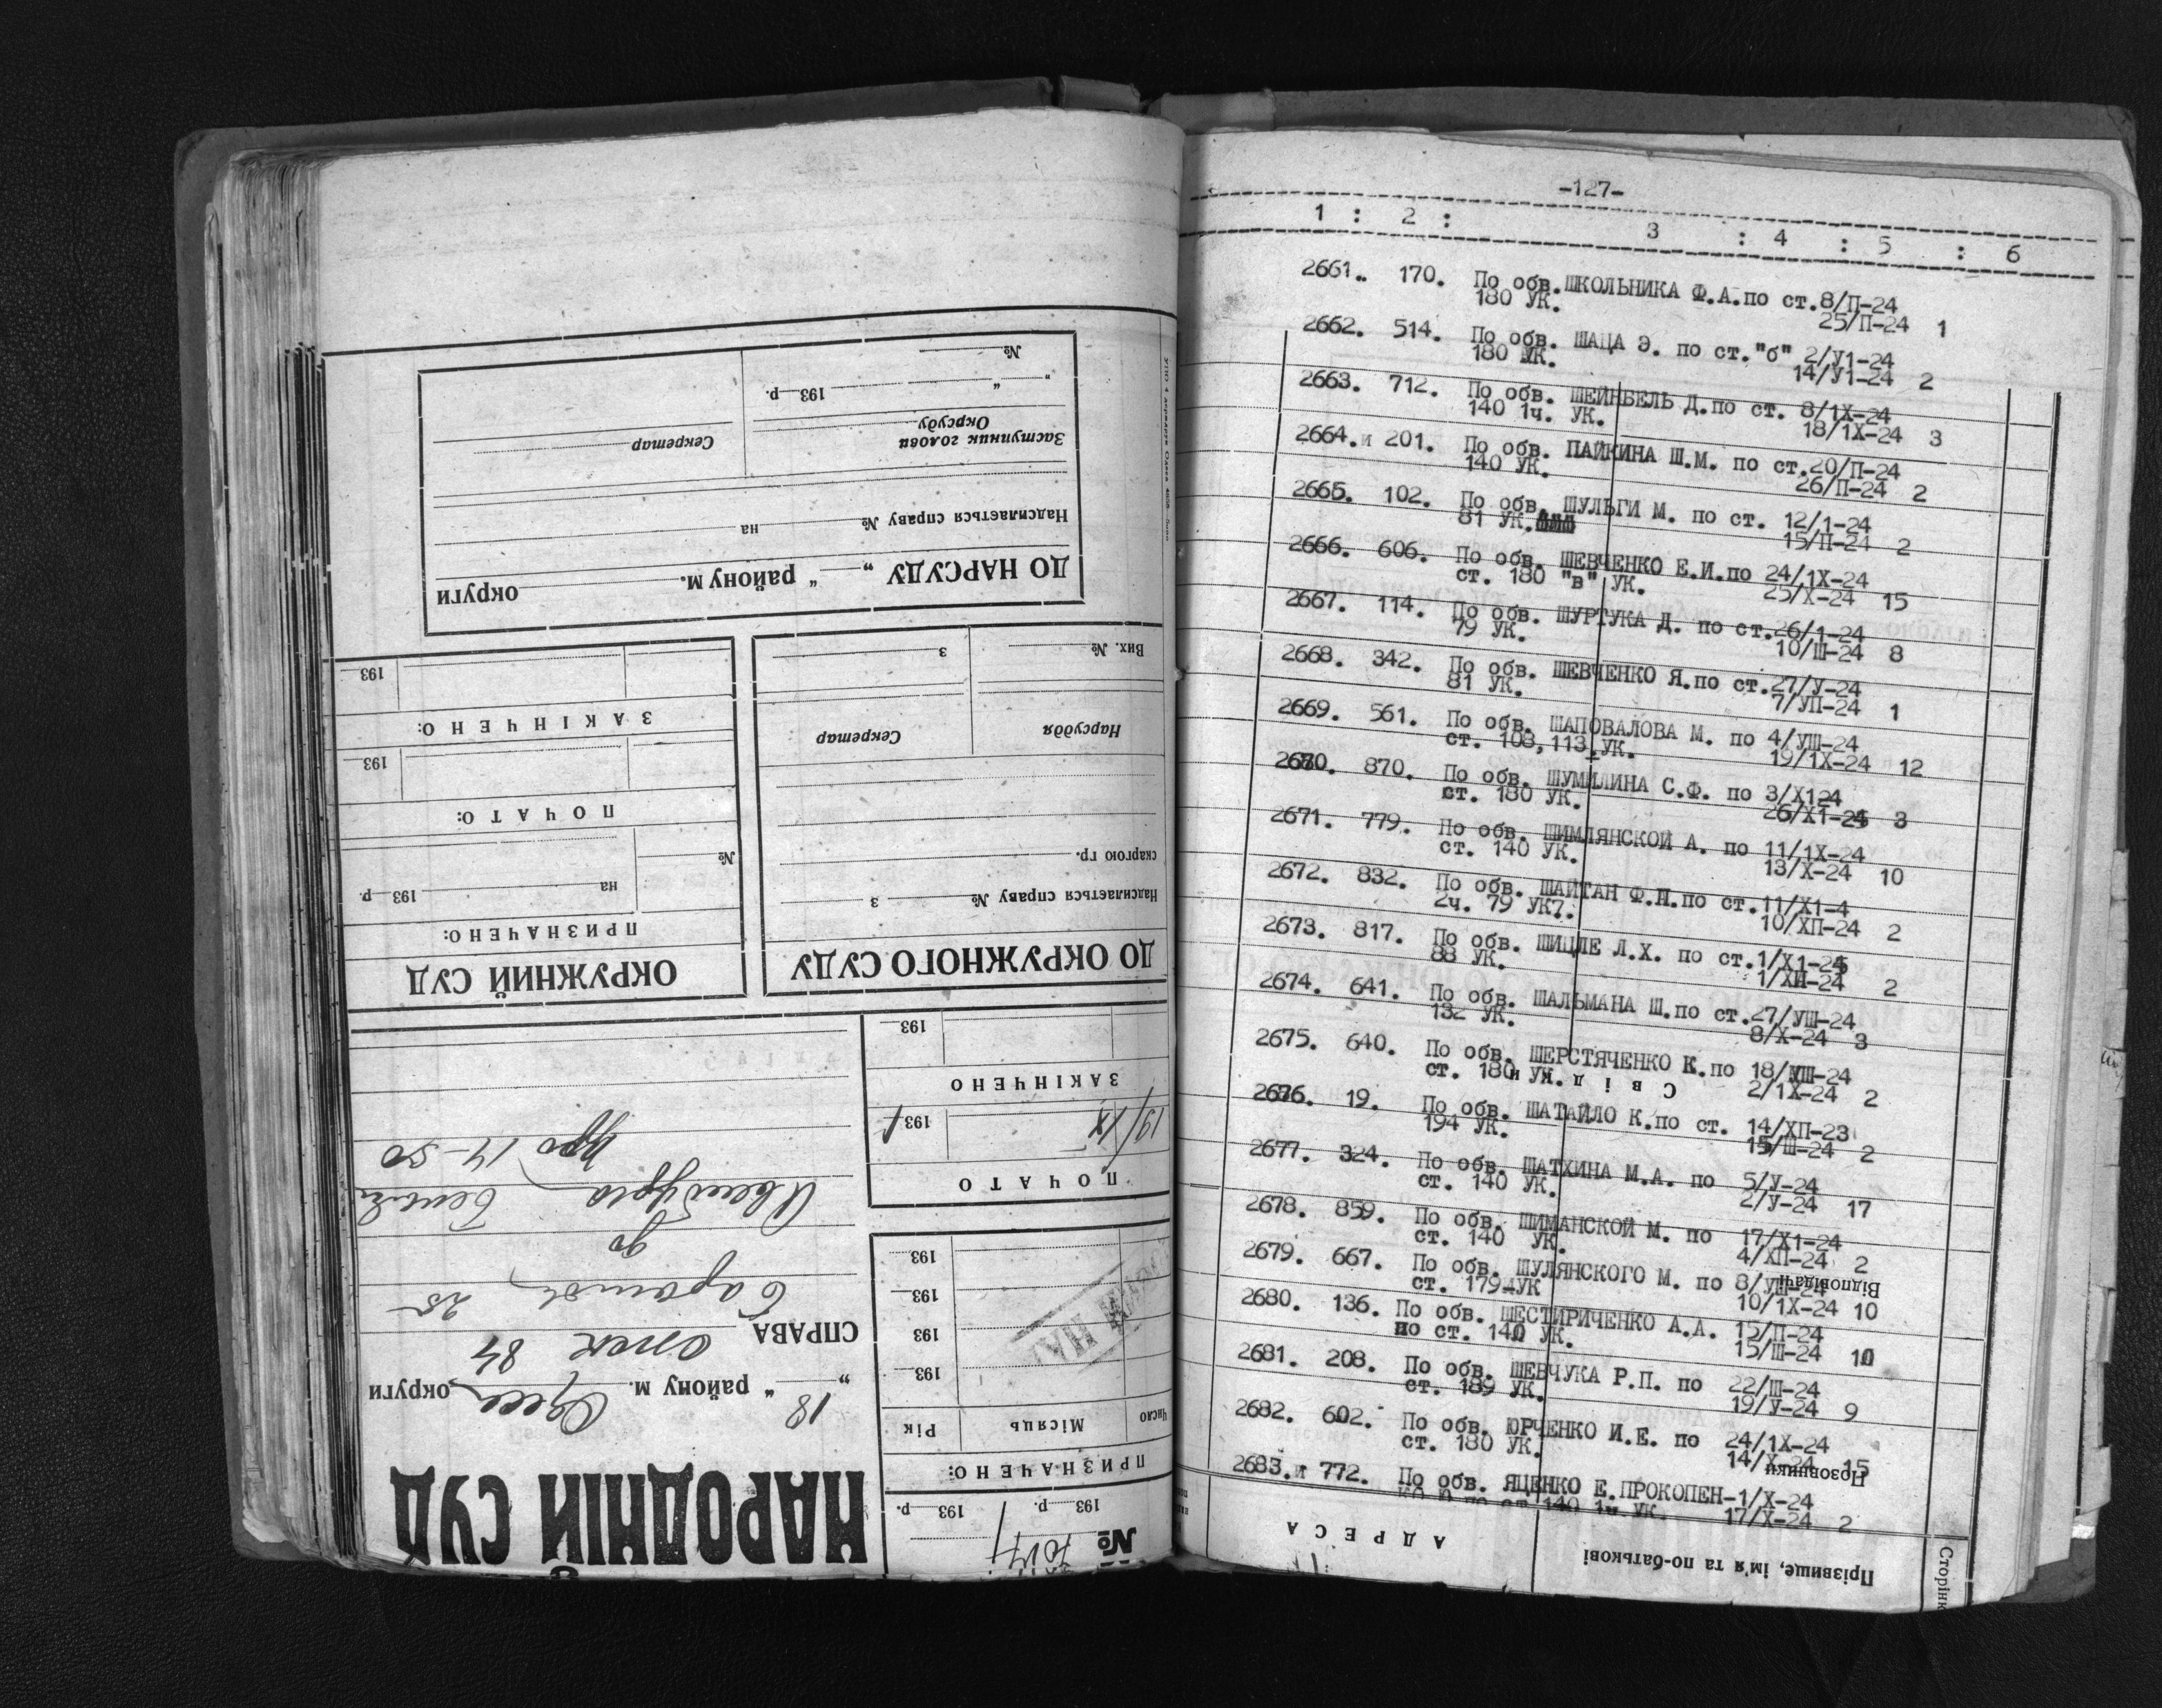 ДО НАРСУДУ „ “ району м. округи
Надсилається справу № на
Заступник голови
Окрсуду
Секретар
" " 193 р.
№
Вих. № з
Нарсуддя
Секретар
скаргою гр.
Надсилається справу № з
ДО ОКРУЖНОГО СУДУ
ЗАКІНЧЕНО:
193
ПОЧАТО:
193
№
на 193 р.
ПРИЗНАЧЕНО:
ОКРУЖНИЙ СУД
193
ЗАКІНЧЕНО
19/IX 1931
ПОЧАТО
193
193
193
193
Число Місяць Рік
ПРИЗНАЧЕНО:
193 р. 193 р.
№
НАРОДНІЙ СУД
„18“ району м. округи
СПРАВА
-127-
1 : 2 : 3 : 4 : 5 : 6
2661. 170. По обв.ШКОЛЬНИКА Ф.А.по ст.8/П-24
180 УК. 25/П-24 1
2662. 514. По обв. ШАЦА Э. по ст."б" 2/У1-24
180 УК. 14/У1-24 2
2663. 712. По обв. ШЕЙНБЕЛЬ Д.по ст. 8/1Х-24
140 1ч. УК. 18/1Х-24 3
2664.и 201. По обв. ПАЙКИНА Ш.М. по ст.20/П-24
140 УК. 26/П-24 2
2665. 102. По обв. ШУЛЬГИ М. по ст. 12/1-24
81 УК. 15/П-24 2
2666. 606. По обв. ШЕВЧЕНКО Е.И.по 24/1Х-24
ст. 180 "в" УК. 25/Х-24 15
2667. 114. По обв. ШУРТУКА Д. по ст.26/1-24
79 УК. 10/Ш-24 8
2668. 342. По обв. ШЕВЧЕНКО Я.по ст.27/У-24
81 УК. 7/УП-24 1
2669. 561. По обв. ШАПОВАЛОВА М. по 4/УШ-24
ст. 108,113 УК. 19/1Х-24 12
2670. 870. По обв. ШУМИЛИНА С.Ф. по 3/Х124
ст. 180 УК. 26/Х1-24 3
2671. 779. По обв. ШИМЛЯНСКОЙ А. по 11/1Х-24
ст. 140 УК. 13/Х-24 10
2672. 832. По обв. ШАЙТАН Ф.Н.по ст.11/Х1-4
2ч. 79 УК7. 10/ХП-24 2
2673. 817. По обв. ШИЦЛЕ Л.Х. по ст.1/Х1-24
88 УК. 1/ХП-24 2
2674. 641. По обв. ШАЛЬМАНА Ш.по ст.27/УШ-24
132 УК. 8/Х-24 3
2675. 640. По обв. ШЕРСТЯЧЕНКО К.по 18/УШ-24
ст. 180 УК. 2/1Х-24 2
Свідки
2676. 19. По обв. ШАТАЙЛО К.по ст. 14/ХП-23
194 УК. 15/Ш-24 2
2677. 324. По обв. ШАТХИНА М.А. по 5/У-24
ст. 140 УК. 2/У-24 17
2678. 859. По обв. ШИМАНСКОЙ М. по 17/Х1-24
ст. 140 УК. 4/ХП-24 2
2679. 667. По обв. ШУЛЯНСКОГО М. по 8/УШ-24
ст. 179 УК 10/1Х-24 10
Відповідачі
2680. 136. По обв. ШЕСТИРИЧЕНКО А.А. 15/П-24
по ст. 140 УК. 15/Ш-24 10
2681. 208. По обв. ШЕВЧУКА Р.П. по 22/Ш-24
ст. 189 УК. 19/У-24 9
2682. 602. По обв. ЮРЧЕНКО И.Е. по 24/1Х-24
ст. 180 УК. 14/Х-24 15
Позовники
2683.и 772. По обв. ЯЦЕНКО Е.ПРОКОПЕН-1/Х-24
КО Ф.по ст.140 1ч. УК. 17/Х-24 2
АДРЕСА
Прізвище, ім'я та по-батькові